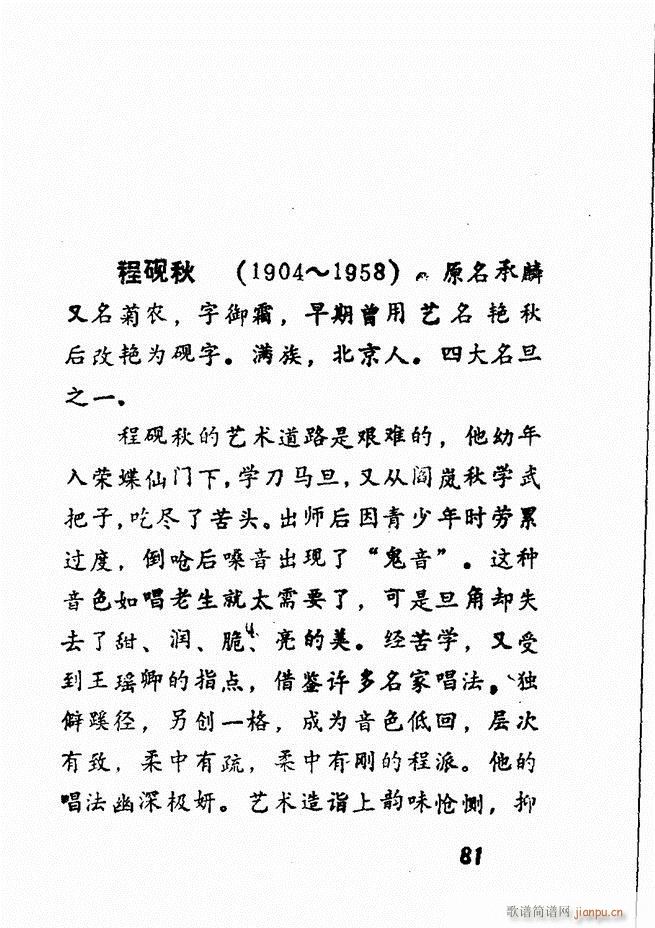 程砚秋 (1904～1958)。原名承麟
又名菊农，字御霜，早期曾用艺名艳秋
后改艳为砚字。满族，北京人。四大名旦
之一.
程砚秋的艺术道路是艰难的，他幼年
入荣蝶仙门下，学刀马旦，又从阎岚秋学武
把子，吃尽了苦头。出师后因青少年时劳累
过度，倒呛后嗓音出现了“鬼音”。这种
音色如唱老生就太需要了，可是旦角却失
去了甜、润、脆、亮的美。经苦学，又受
到王瑶卿的指点，借鉴许多名家唱法。独
僻蹊径，另创一格，成为音色低回，层次
有致，柔中有疏，柔中有刚的程派。他的
唱法幽深极妍。艺术造诣上韵味怆恻，抑
81
歌谱简谱网 jianpu.cn